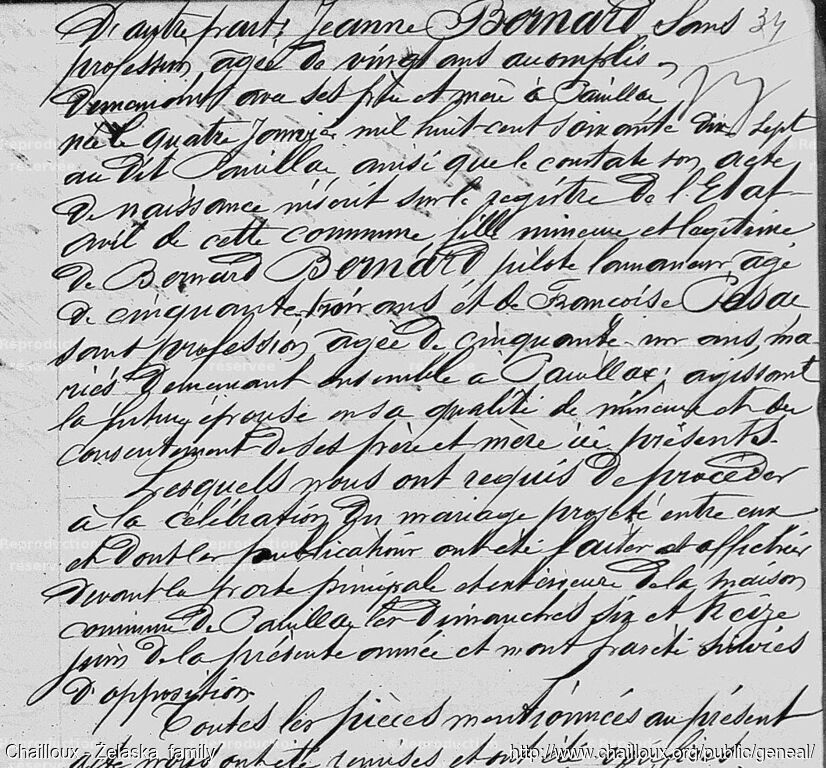 D'autre part; Jeanne Bernard sans 37
profession, agée de vingt ans accomplis,
demeurant avec ses père et mère à Pauillac
née le quatre Janvier mil huit-cent soixante dix-sept
au dit Pauillac ainsi que le constate son acte
de naissance inscrit sur le registre de l'Etat-
civil de cette commune fille mineure et légitime
de Bernard Bernard pilote lamaneur âgé
de cinquante-trois ans et de Françoise Pessac
sans profession, âgée de cinquante-un ans, ma-
riés demeurant ensemble à Pauillac; agissant
la future épouse en sa qualité de mineure et du
consentement de ses père et mère ici présents.
Lesquels nous ont requis de procéder
à la célébration du mariage projeté entre eux
et dont les publications ont été faites et affichées
devant la porte principale et extérieure de la maison
commune de Pauillac les dimanches six et treize
juin de la présente année et n'ont pas été suivies
d'opposition.
Toutes les pièces mentionnées au présent
acte nous ont été remises et ont été
Chailloux - Zelaska family
http://www.chailloux.org/public/geneal/
Reproduction
réservée